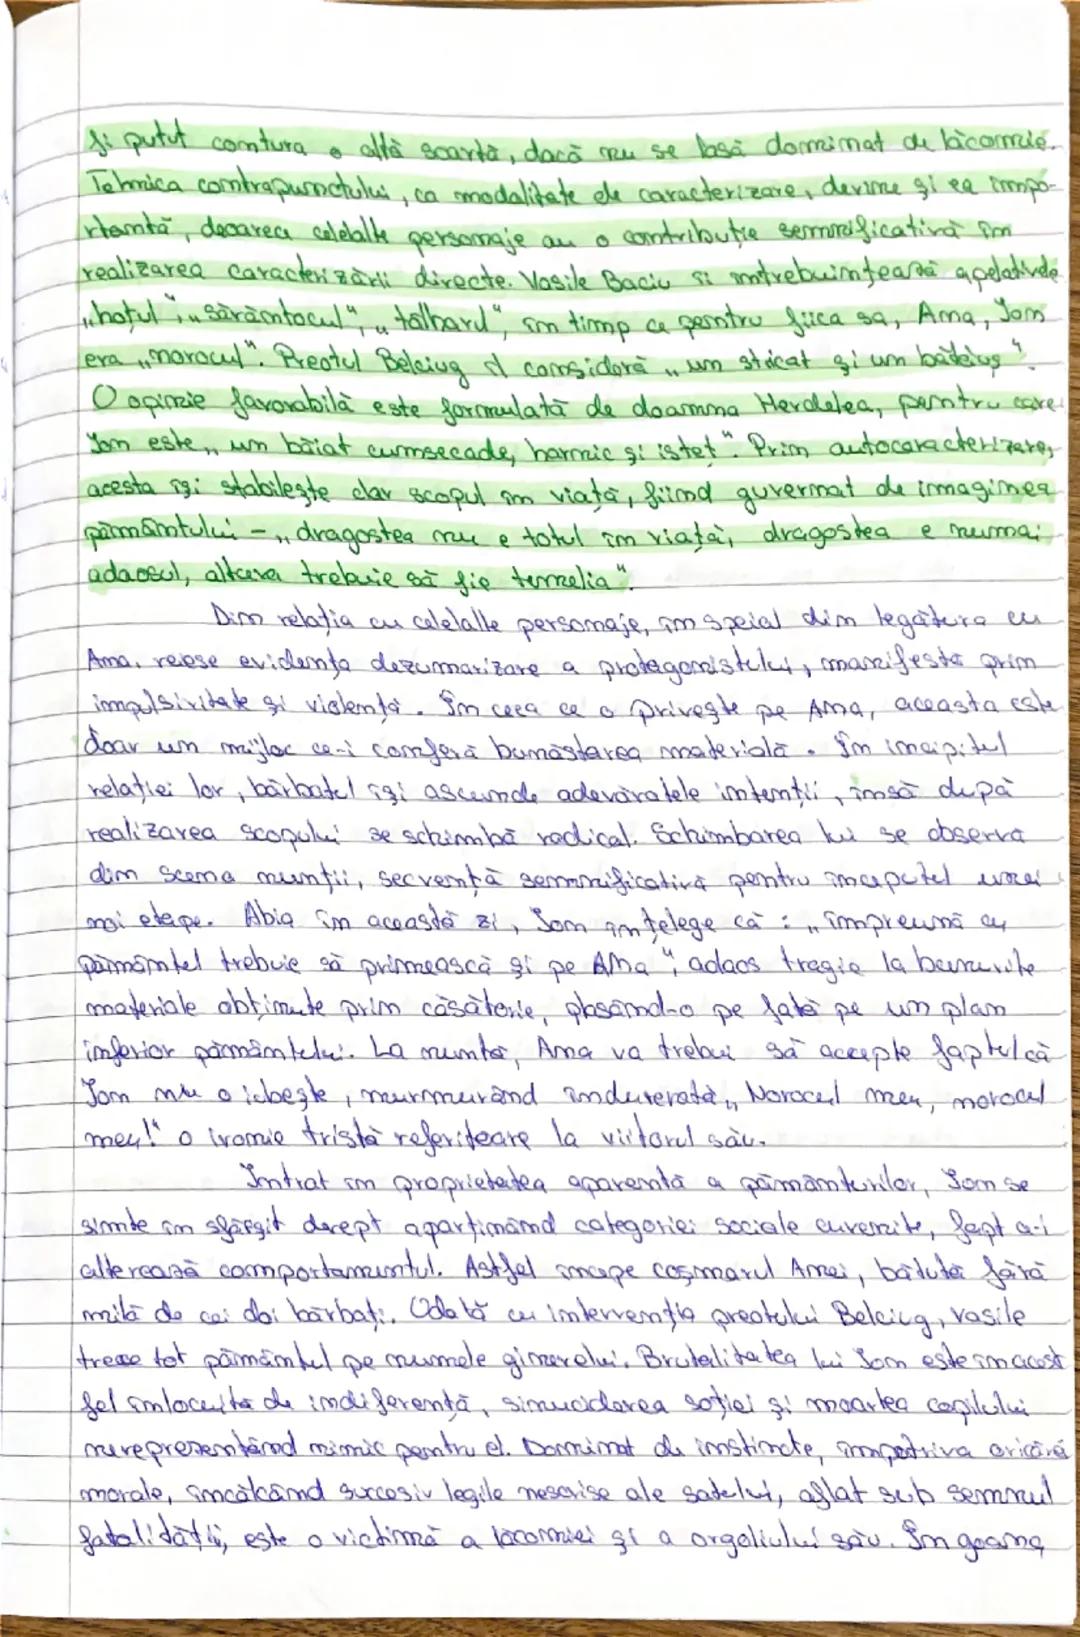 fi putut contura o altă soartă, dacă nu se lasă dominat de lăcomie.
Tehnica contrapunctului, ca modalitate de caracterizare, devine și ea impo-
rtantă, deoarece celelalte personaje au o contribuție semnificativă în
realizarea caracterizării directe. Vasile Baciu îi întrebuințează apelativele
„hoțul", „sărăntocul", „tâlharul", în timp ce pentru fiica sa, Ana, Ion
era „norocul". Preotul Belciug îl consideră „un stricat și un bătăuș".
O opinie favorabilă este formulată de doamna Herdelea, pentru care
Ion este „un băiat cumsecade, harnic și isteț". Prin autocaracterizare,
acesta își stabilește clar scopul în viață, fiind guvernat de imaginea
pământului – „dragostea nu e totul în viață, dragostea e numai
adaosul, altceva trebuie să fie temelia".
Din relația cu celelalte personaje, în speial din legătura cu
Ana, reiese evidenta dezumanizare a protagonistului, manifestă prin
impulsivitate și violență. În ceea ce o privește pe Ana, aceasta este
doar un mijloc ce-i conferă bunăstarea materială. În incipitul
relației lor, bărbatul își ascunde adevăratele intenții, însă după
realizarea scopului se schimbă radical. Schimbarea lui se observa
din scena nunții, secvență semnificativă pentru începutul unei
noi etape. Abia în această zi, Ion înțelege că : „împreună cu
pământul trebuie să primească și pe Ana", adaos tragic la bunurile
materiale obținute prin căsătorie, plasând-o pe fată pe un plan
inferior pământului. La nunta, Ana va trebui să accepte faptul că
Ion nu o iubește, murmurând îndurerată „Norocul meu, norocul
meu!" o ironie tristă referitoare la viitorul său.
Intrat în proprietatea aparentă a pământurilor, Ion se
simte în sfârșit drept aparținând categoriei sociale cuvenite, fapt a-i
alterează comportamentul. Astfel începe coșmarul Anei, bătută fără
milă de cei doi bărbați. Odată cu intervenția preotului Belciug, Vasile
trece tot pământul pe numele ginerelui. Brutalitatea lui Ion este în acest
fel înlocuita de indiferență, sinuciderea soției și moartea copilului
nereprezentând nimic pentru el. Dominat de instincte, împotriva oricărei
morale, încălcând succesiv legile nescrise ale satului, aflat sub semnul
fatalității, este o victimă a lăcomiei și a orgoliului său. În goana